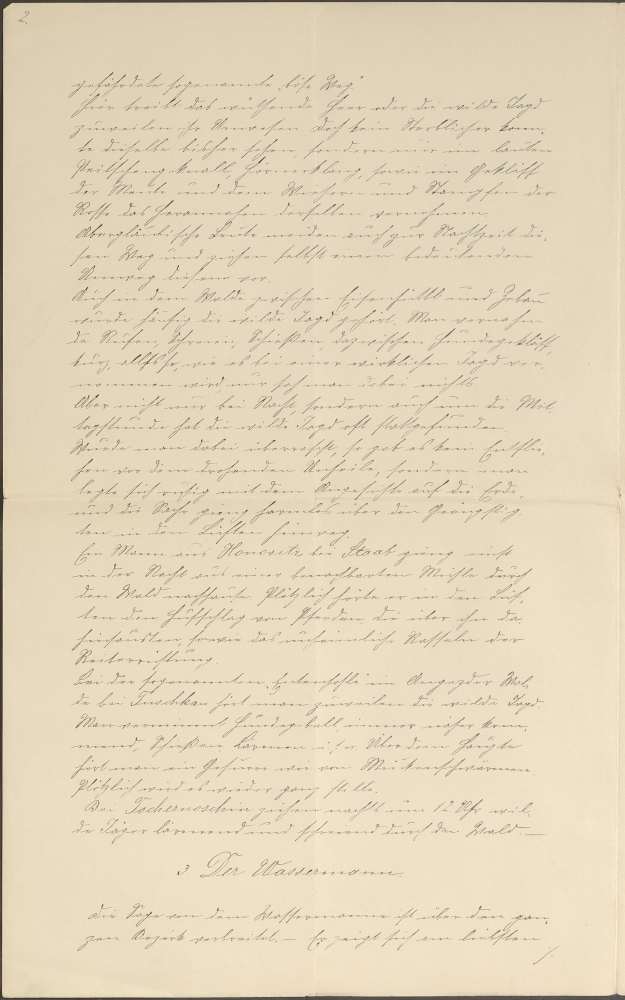 2.
gefährdete sogenannte „böse Weg“.
Hier treibt das wüthende Heer oder die wilde Jagd
zuweilen ihr Unwesen. Doch kein Sterblicher konn-
te dieselbe bisher sehen, sondern nur im lauten
Peitschengeknall, Hörnerklang, sowie im Gekläff
der Meute und dem Wiehern und Stampfen der
Rosse das Herannahen derselben vernehmen.
Abergläubische Leute meiden auch zur Nachtzeit die-
sen Weg und ziehen selbst einen bedeutenden
Umweg diesem vor.
Auch in dem Walde zwischen Eisenhüttl und
wurde häufig die wilde Jagd gehört. Man vernahm
da Rufen, Schreien, Schießen, dazwischen Hundegekläff,
kurz, alles so, wie es bei einer wirklichen Jagd ver-
nommen wird, nur sah man dabei nichts.
Aber nicht nur bei Nacht, sondern auch um die Mit-
tagsstunde hat die wilde Jagd oft stattgefunden.
Wurde man dabei überrascht, so gab es kein Entflie-
hen vor dem drohenden Unheile, sondern man
legte sich ruhig mit dem Angesichte auf die Erde,
und die Sache gieng harmlos über den Geängstig-
ten in den Lüften hinweg.
Ein Mann aus Honositz bei Staab gieng einst
in der Nacht aus einer benachbarten Mühle durch
den Wald nachhause. Plötzlich hörte er in den Lüf-
ten den Hufschlag von Pferden die über ihn da-
hinsausten, sowie das unheimliche Rasseln der
Reiterrüstung.
Bei der sogenannten im Wal-
de bei Tuschkau hört man zuweilen die wilde Jagd.
Man vernimmt Hundegebell, immer näher kom-
mend, Schießen, Lärmen u. s. w. Über dem Haupte
hört man ein Gesurre wie von Mückenschwärmen.
Plötzlich wird es wieder ganz stille.
Bei Tschernoschin ziehen nachts um 12 Uhr wil-
de Jäger lärmend und schreiend durch den Wald. —
3. Der Wassermann.
Die Sage von dem Wassermanne ist über den gan-
zen Bezirk verbreitet. — Er zeigt sich am liebsten
./.